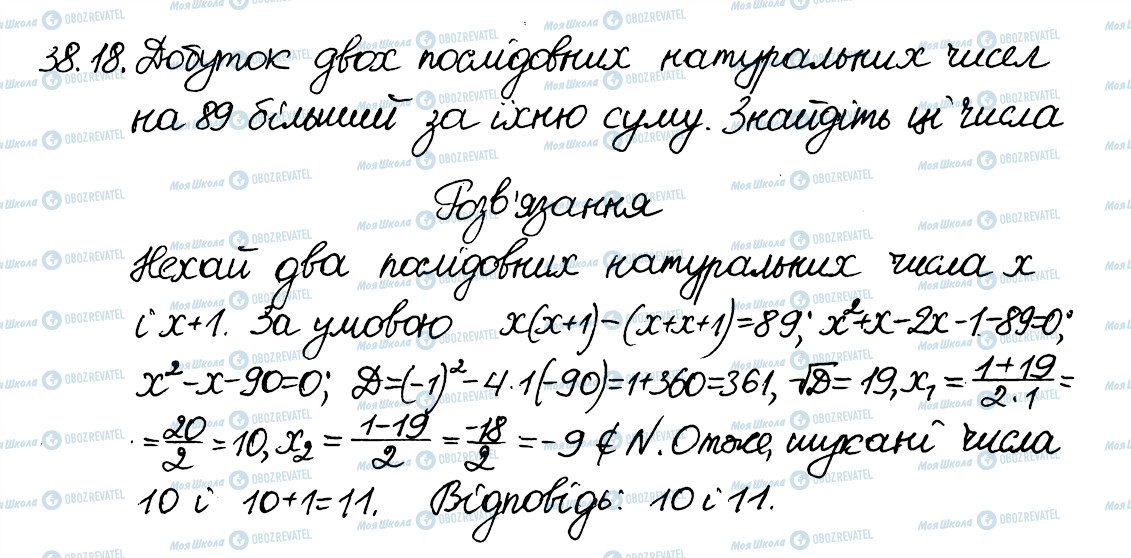 38.18. Добуток двох послідовних натуральних чисел
на 89 більший за їхню суму. Знайдіть ці числа
Розв'язання
Нехай два послідовних натуральних числа x
і x+1. За умовою x(x+1)-(x+x+1)=89; x²+x-2x-1-89=0;
x²-x-90=0; D=(-1)²-4·1(-90)=1+360=361, √D=19, x₁=\frac{1+19}{2·1}=
=\frac{20}{2}=10, x₂=\frac{1-19}{2}=\frac{-18}{2}=-9∉N. Отже, шукані числа
10 і 10+1=11. Відповідь: 10 і 11.
МояШкола OBOZREVATEL